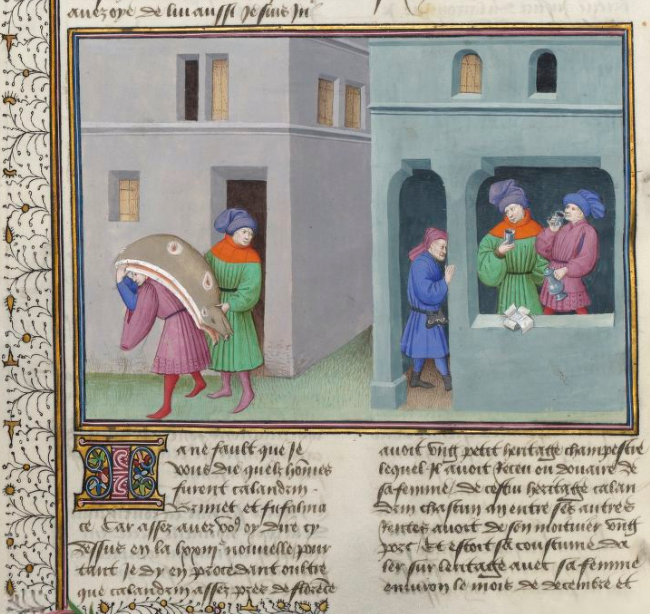 auez oye de lui aussi Je suis
Ia ne fault que Je
vous die quelz hōmes
furent calandrin ·
et
Car assez auez vo9 oy dire cy
dessus en la nouuelle pour
tant Je dy en procedant oultre
que calandrin assez pres de florēce
auoit vng petit heritage champestre
lequel Il auoit Receu ou douaire de
sa femme / de cestui heritage calan
drin chascun an entre ses autres
Rentes auoit de son moitoier vng
porc / Et estoit sa coustume da
ler sur leritage auec sa femme
enuiron le mois de decembre et